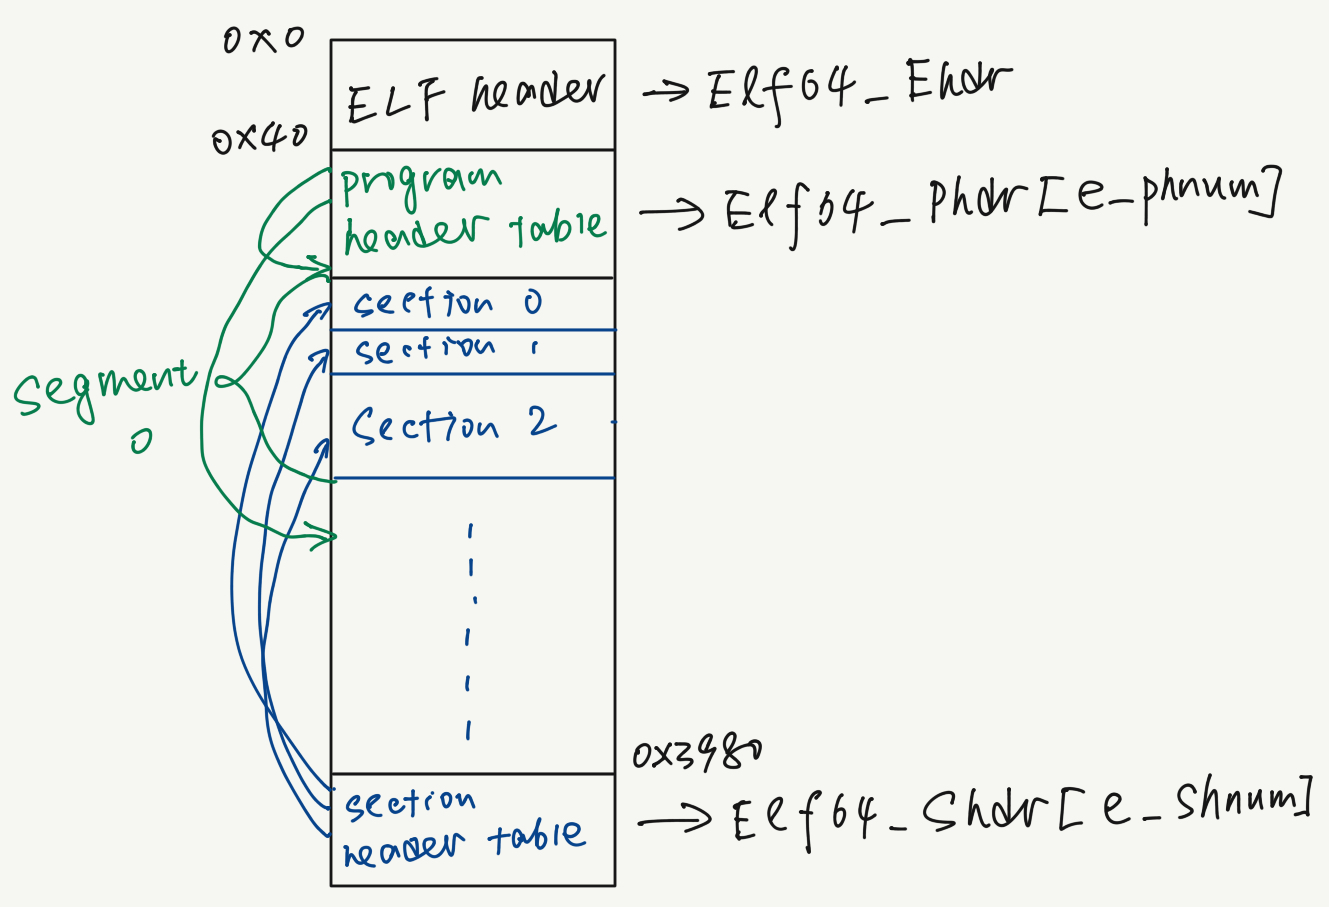 0x0
ELF header → Elf64_Ehdr
0x40
program
header table → Elf64_Phdr[e_phnum]
section 0
section 1
segment
0
Section 2
0x3980
section
header table → Elf64_Shdr[e_shnum]